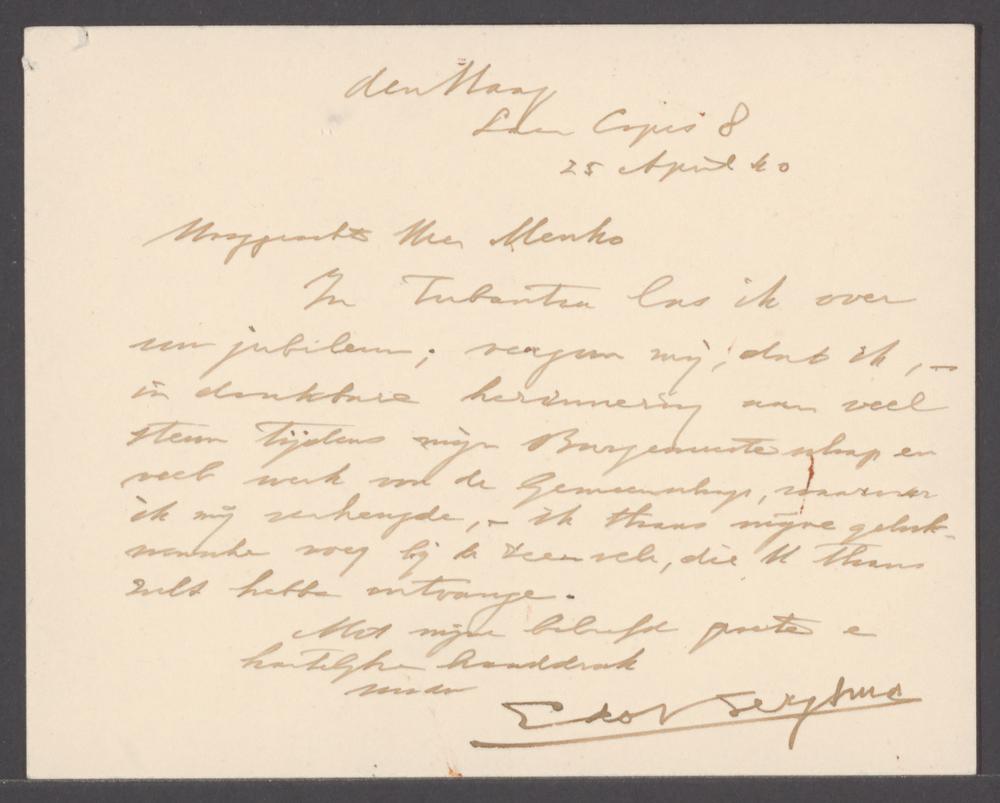 den Haag
Laan Copes 8
25 April 40
Hooggeachte Heer Menko
In Tubantia las ik over
uw jubileum; vergun mij, dat ik, –
in dankbare herinnering aan veel
steun tijdens mijn Burgemeesterschap en
veel werk voor de Gemeenschap, waarover
ik mij verheugde, – ik thans mijne geluk-
wensche voeg bij de zeer vele, die U thans
zult hebbe ontvange.
Met mijne beleefde groete e
hartelijke handdruk
Edo Bergsma